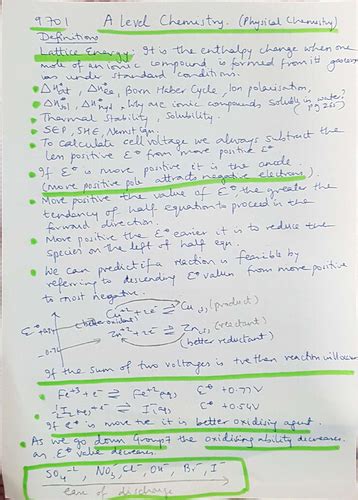 9701 A Level Chemistry. (Physical Chemistry)
Definitions
Lattice Energy: It is the enthalpy change when one
mole of an ionic compound is formed from its gaseous
ions under standard conditions.
• ΔH°at, ΔH°ea, Born Haber Cycle, Ion polarisation,
• ΔH°sol, ΔH°hyd, Why are ionic compounds soluble in water?
(pg 265)
• Thermal Stability, Solubility.
• SEP, SHE, Nernst Eqn.
• To calculate cell voltage we always subtract the
less positive E° from more positive E°
• If E° is more positive it is the anode.
(more positive pole attracts negative electrons).
• More positive the value of E° the greater the
tendency of half equation to proceed in the
forward direction
• More positive the E° easier it is to reduce the
species on the left of half eqn.
• We can predict if a reaction is feasible by
referring to descending E° values from more positive
to most negative.
Cu+2 + 2e- ⇌ Cu(s) (product)
(better oxidant)
Zn+2 + 2e- ⇌ Zn(s) (reactant)
(better reductant)
If the sum of two voltages is +ve then reaction will occur
• Fe+3 + e- ⇌ Fe+2 aq E° +0.77V
• ½I2 aq + e- ⇌ I- aq E° +0.54V
• If E° is more +ve it is better oxidising agent.
• As we go down Group 7 the oxidising ability decreases
as E° value decreases.
SO4-2, NO3-, Cl-, OH-, Br-, I-
ease of discharge